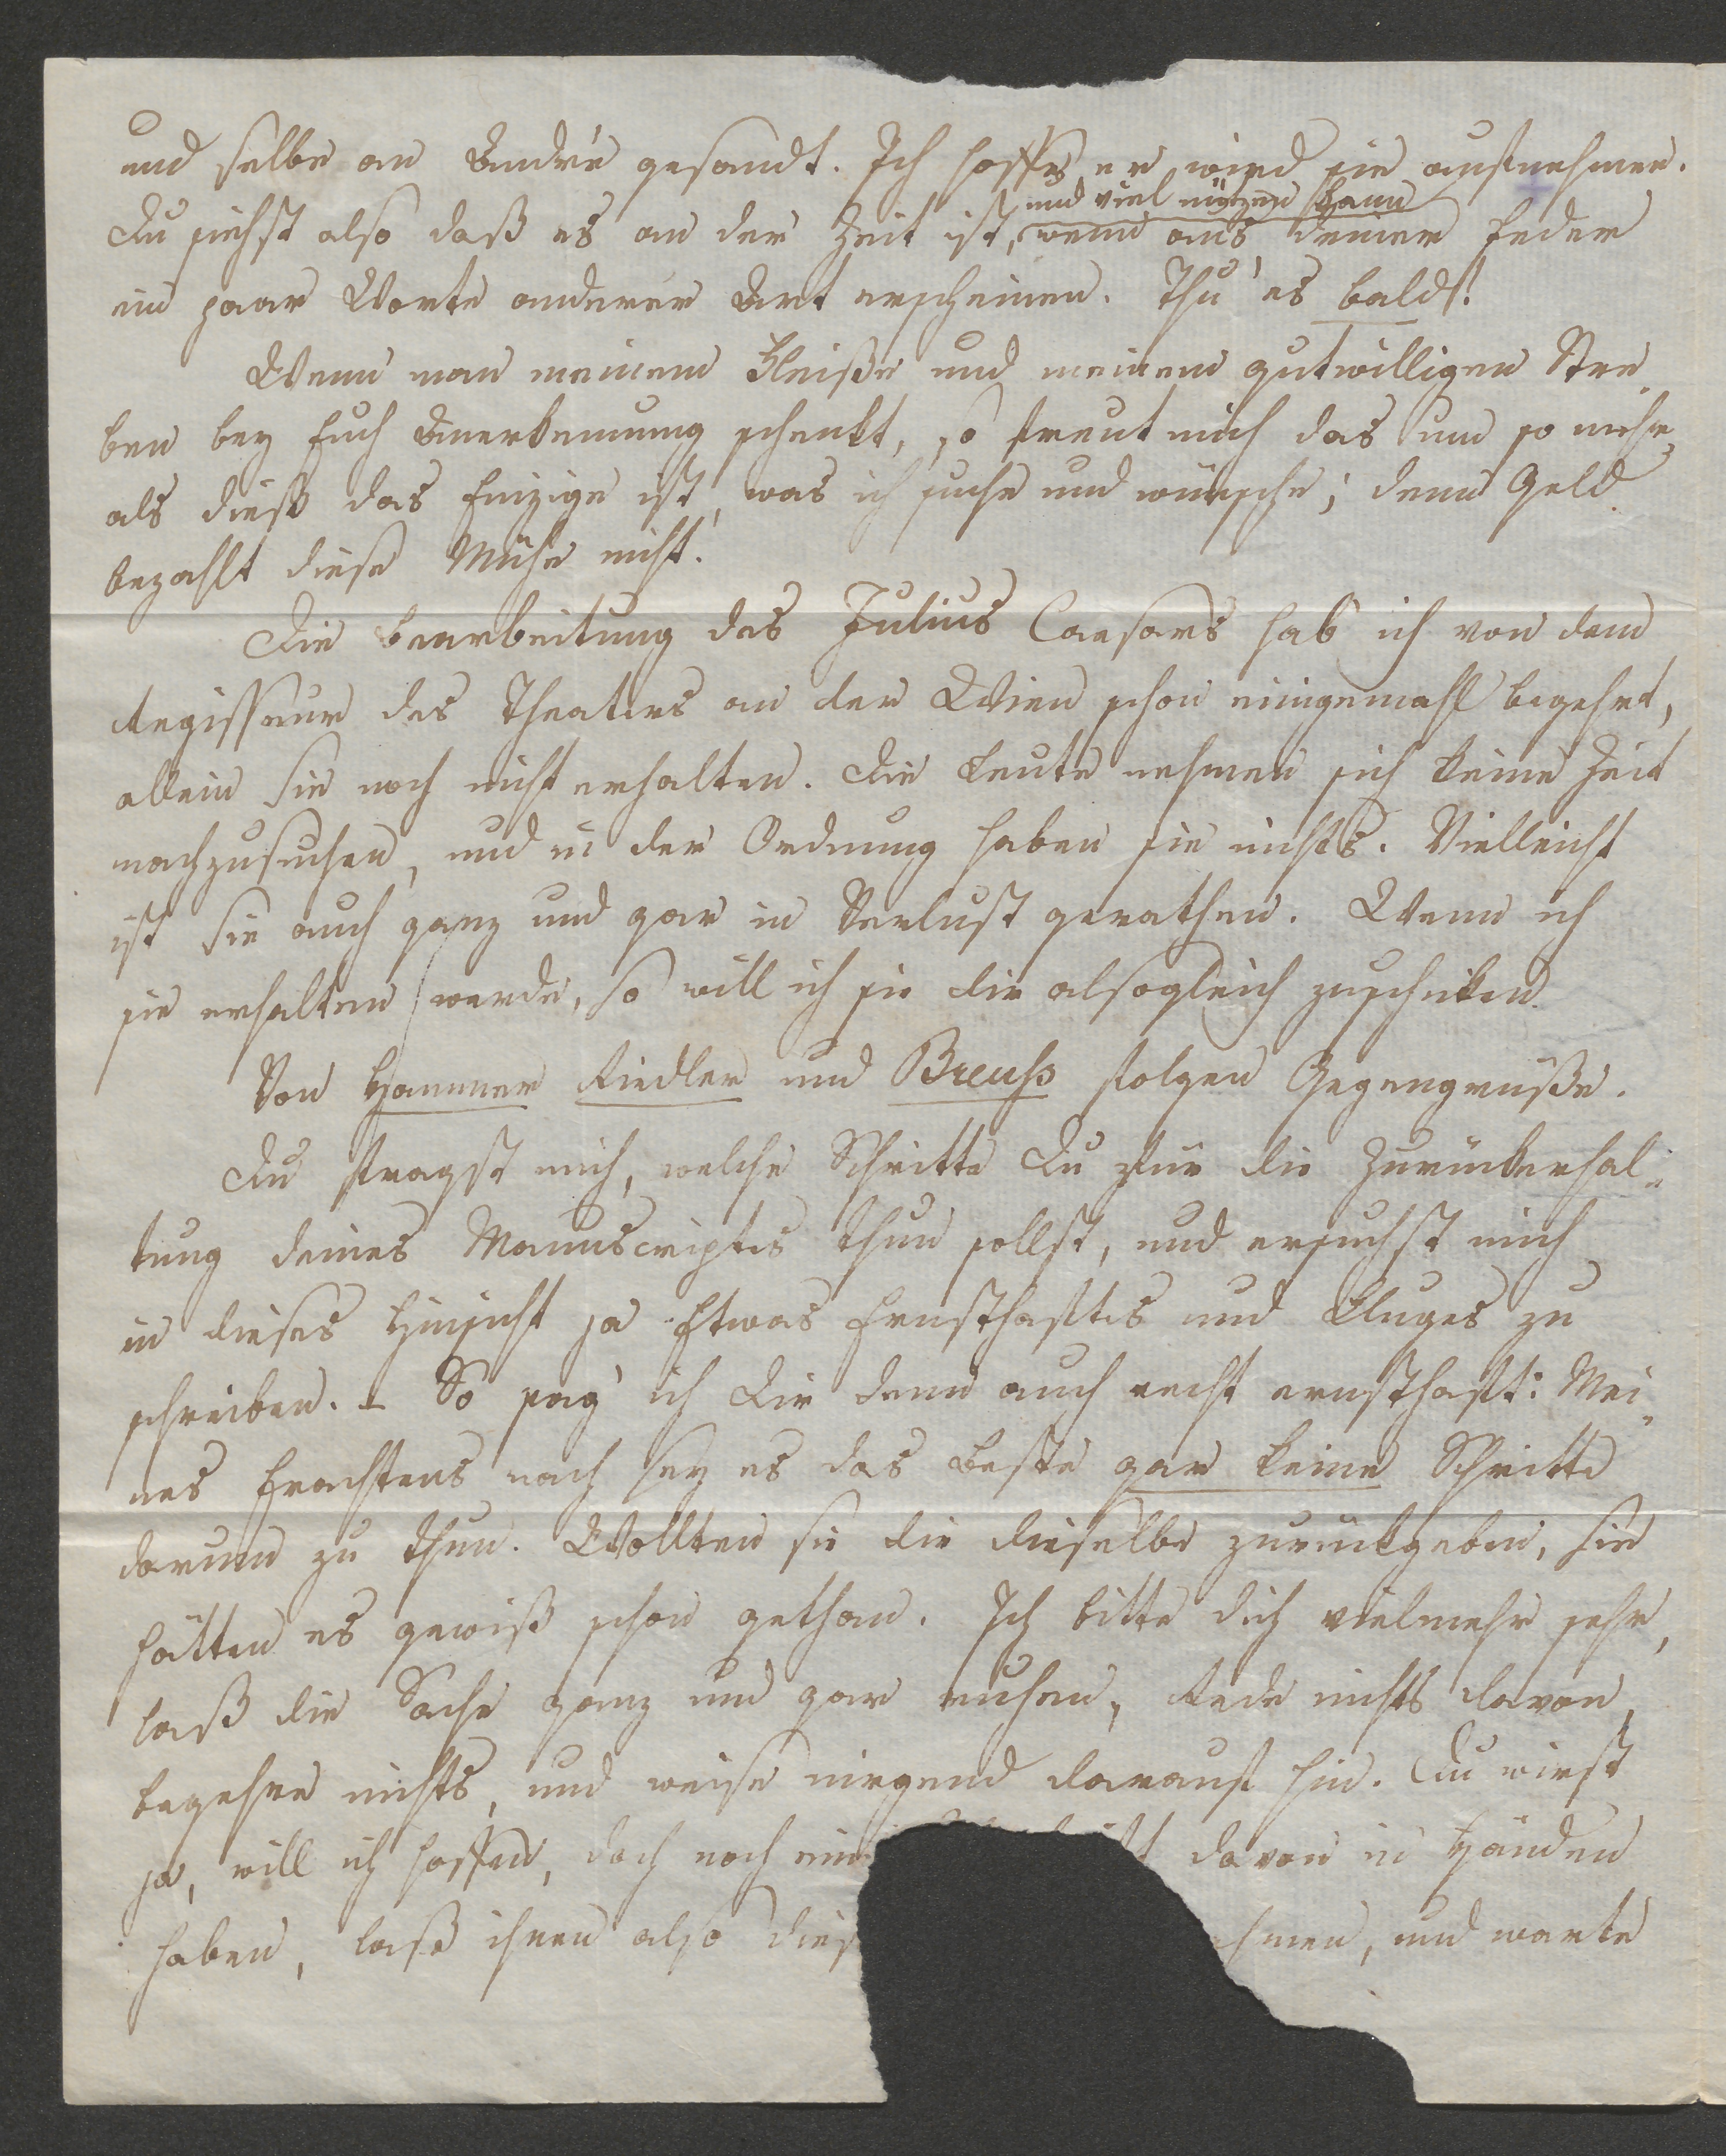 und selbe an André gesandt. Ich hoffe, er wird sie aufnehmen.
und viel nützen kann
Du siehst also daß es an der Zeit ist, wenn aus deiner Feder
ein paar Worte anderer Art erscheinen. Thu' es bald!
Wenn man meinem Fleiße und meinem gutwilligen Stre-
ben bey Euch Anerkennung schenkt, so freut mich das um so mehr,
als dieß das Einzige ist, was ich suche und wünsche; denn Geld
bezahlt diese Mühe nicht.
Die Bearbeitung des Julius Caesars hab' ich von dem
Regisseur des Theaters an der Wien schon einigemahl begehrt,
allein sie noch nicht erhalten. Die Leute nehmen sich keine Zeit
nachzusuchen, und in der Ordnung haben sie nichts. Vielleicht
ist sie auch ganz und gar in Verlust gerathen. Wenn ich
sie erhalten werde, so will ich sie dir alsogleich zuschicken.
Von Hammer Riedler und Breuß folgen Gegengrüße.
Du fragst mich, welche Schritte Du für die Zurückerhal-
tung deines Manuscriptes thun sollst, und ersuchst mich
in dieses Hinsicht ja Etwas Ernsthaftes und Kluges zu
schreiben. – So sag' ich Dir denn auch recht ernsthaft: Mei-
nes Erachtens nach sey es das Beste gar keine Schritte
darum zu thun. Wollten sie dir dieselbe zurückgeben, sie
hätten es gewiß schon gethan. Ich bitte dich vielmehr sehr,
laß die Sache ganz und gar ruhen, Rede nichts davon,
begehre nichts, und weise nirgend darauf hin. Du wirst
ja, will ich hoffen, doch noch davon in Händen
haben, laß ihnen also , und warte